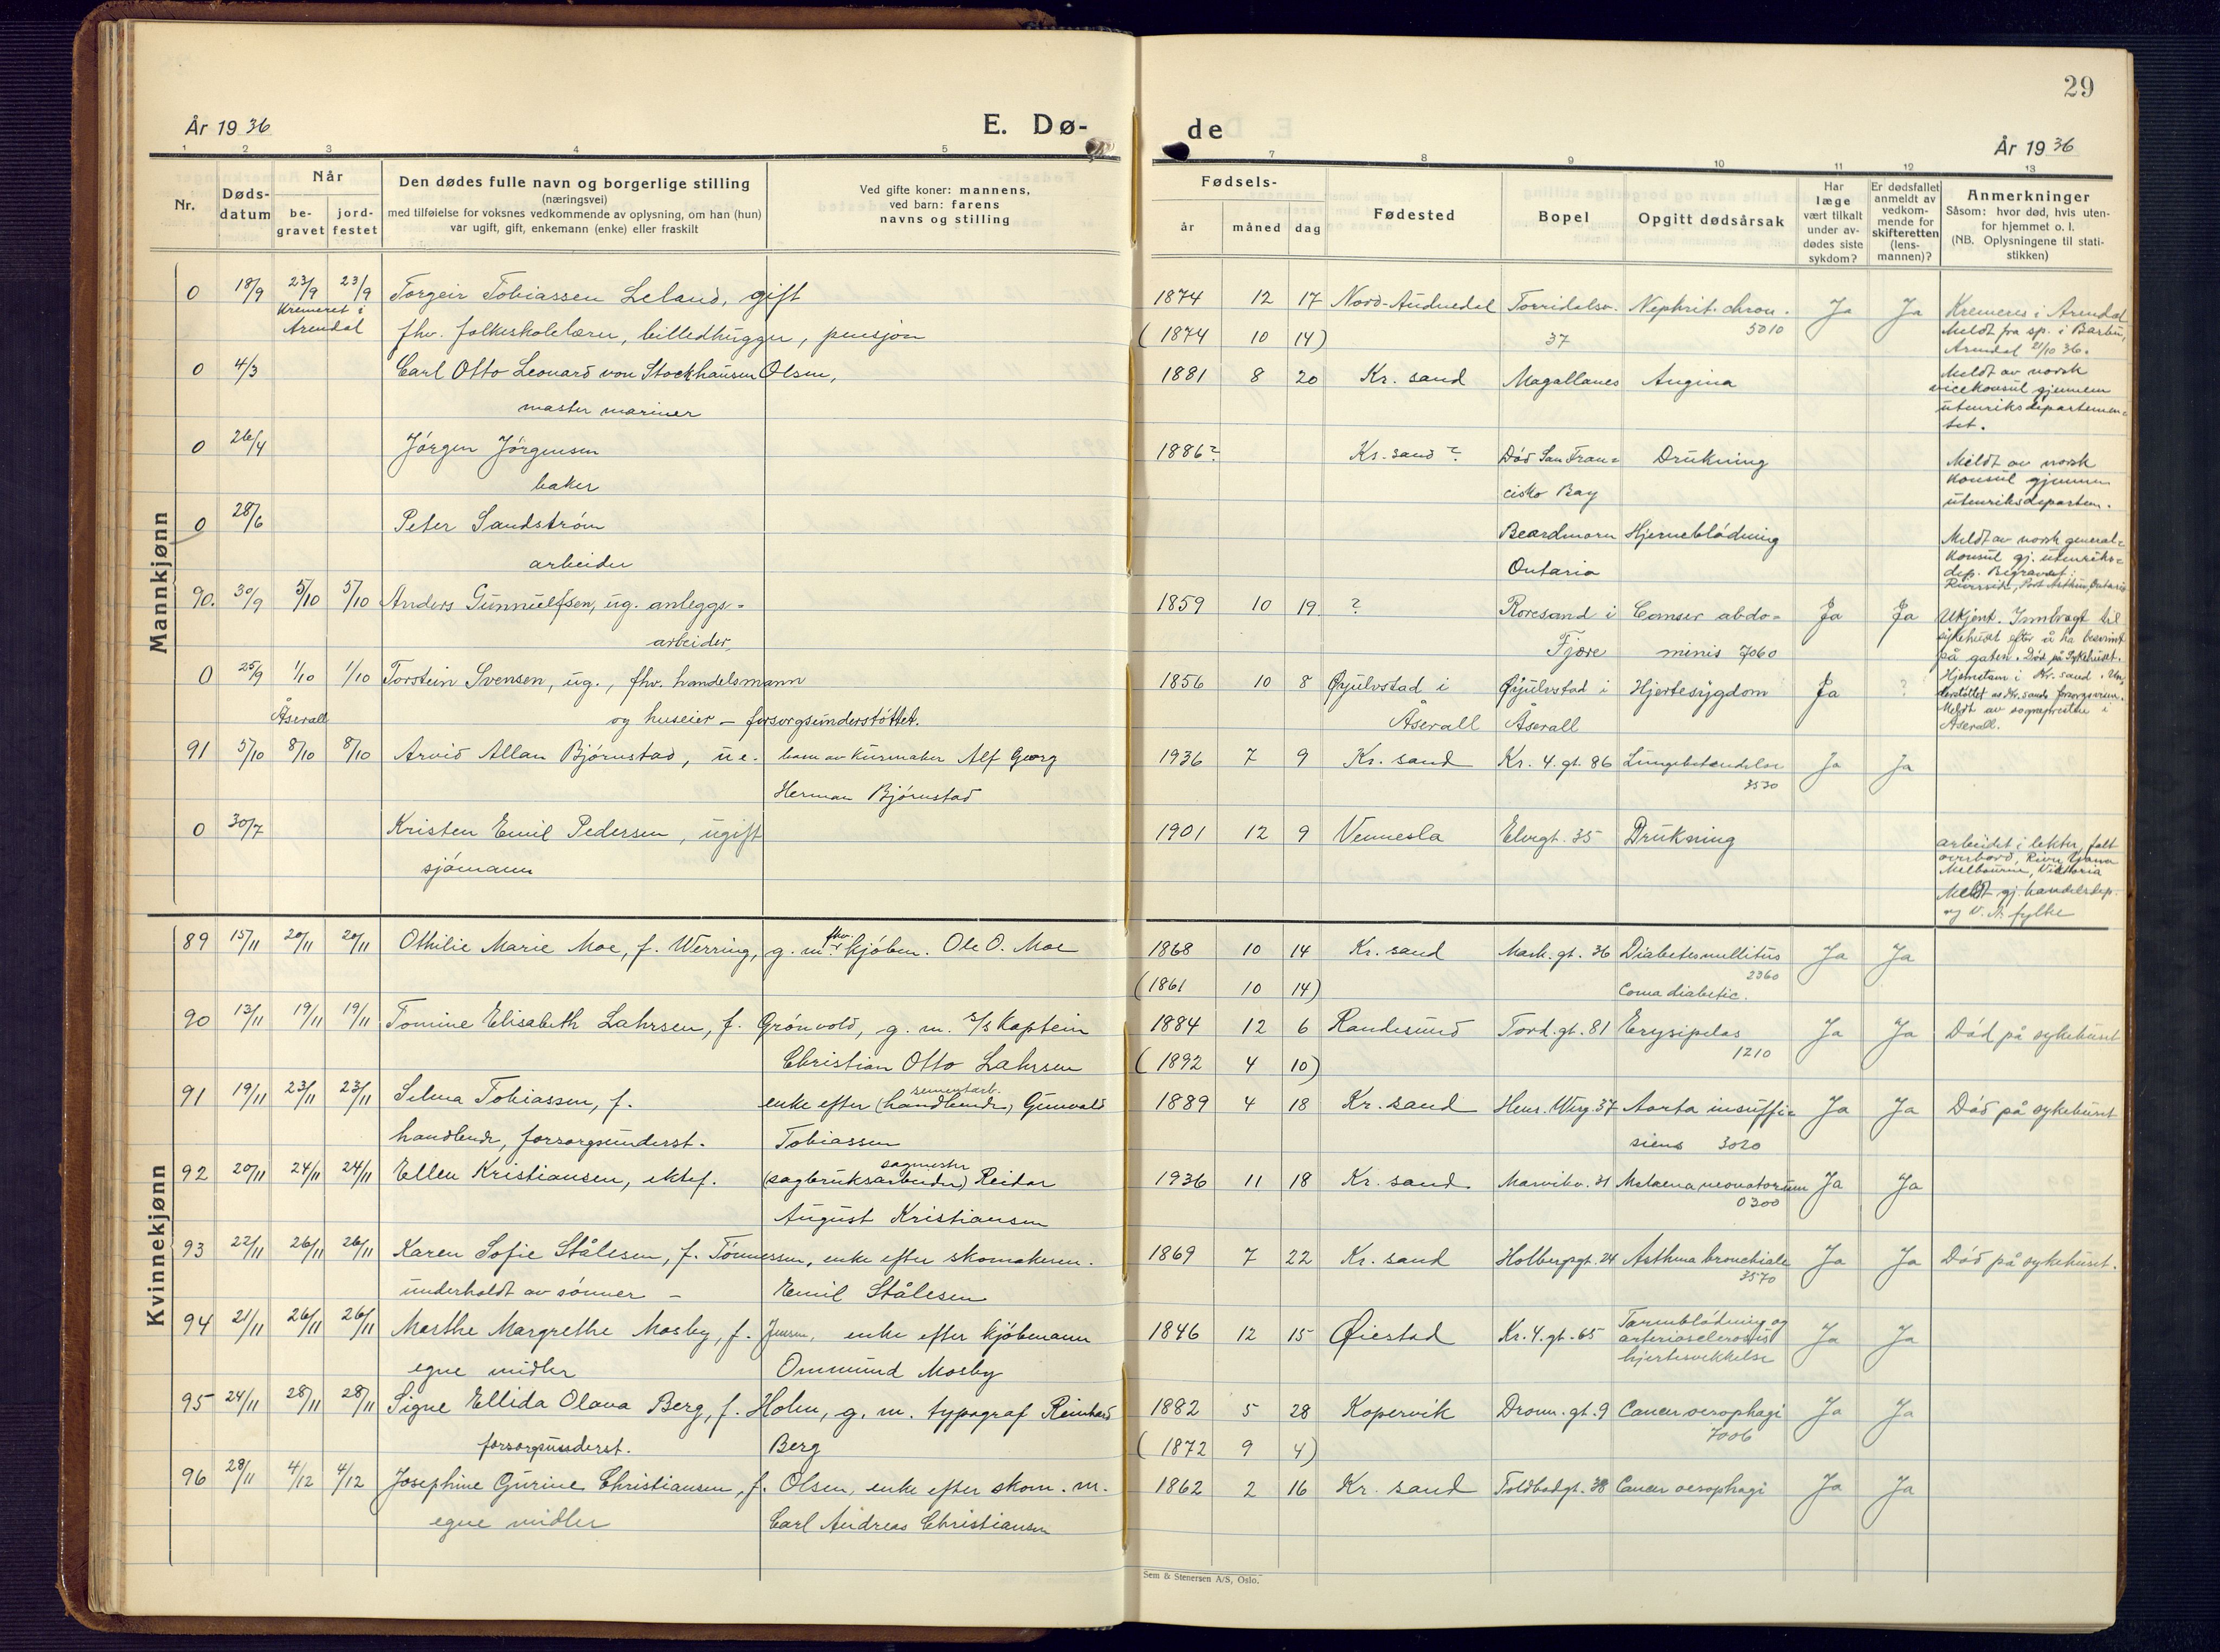 29
År 1936
E. Dø-
de
År 1936
1 2 3 4 5
7 8 9 10 11 12 13
Nr.
Døds-
datum
Når
be-
gravet
jord-
festet
Den dødes fulle navn og borgerlige stilling
(næringsvei)
med tilføielse for voksnes vedkommende av oplysning, om han (hun)
var ugift, gift, enkemann (enke) eller fraskilt
Ved gifte koner: mannens,
ved barn: farens
navns og stilling
Fødsels-
år måned dag
Fødested
Bopel
Opgitt dødsårsak
Har
læge
vært tilkalt
under av-
dødes siste
sykdom?
Er dødsfallet
anmeldt av
vedkom-
mende for
skifteretten
(lens-
mannen)?
Anmerkninger
Såsom: hvor død, hvis uten-
for hjemmet o. l.
(NB. Oplysningene til stati-
stikken)
Mannkjønn
0 18/9 23/9 23/9 Torgeir Tobiassen Leland, gift 1874 12 17 Nord-Audnedal Torridalsv. Nephrit. chron. Ja Ja Kremeres i Arendal
Kremeret i
Arendal fhv. folkeskolelærer, billedhugger, pensjon (1874 10 14) 37 5010 Meldt fra sp. i Barbu,
Arendal 21/10 36.
0 4/3 Carl Otto Leonard von Stockhausen Olsen, 1881 8 20 Kr. sand Magallanes Angina Meldt av norsk
vicekonsul gjennem
master mariner utenriksdepartemen-
tet.
0 26/4 Jörgen Jörgensen 1886? Kr. sand? Död San Fran- Drukning Meldt av norsk
baker cisko Bay konsul gjennem
utenriksdepartem.
0 28/6 Peter Sandström Beardmore Hjerneblödning Meldt av norsk general-
konsul gj. utenriks-
arbeider Ontario dep. Begravet:
Riverside, Port Arthur, Ontario
90. 30/9 5/10 5/10 Anders Gunnulfsen, ug. anleggs- 1859 10 19 ? Roresand i Canser abdo- Ja Ja Ukjent. Innbragt til
sykehuset efter å ha besvimt
arbeider, Fjære minis 7060 på gaten. Död på Sykehuset.
0 25/9 1/10 1/10 Torstein Svensen, ug., fhv. handelsmann 1856 10 8 Øyulvstad i Øyulvstad i Hjertesygdom Ja ? Hjemstam i Kr. sand. Un-
derstöttet av Kr. sands forsorgsvesen.
Åserall og huseier - forsorgsunderstöttet. Åserall Åserall Meldt av sognepresten i
Åserall.
91 5/10 8/10 8/10 Arvid Allan Björnstad, u e. barn av kurvmaker Alf Georg 1936 7 9 Kr. sand Kr. 4. gt. 86 Lungebetendelse Ja Ja
Herman Björnstad 3530
0 30/7 Kristen Emil Pedersen, ugift 1901 12 9 Vennesla Elvegt. 35 Drukning arbeidet i lekter, falt
sjömann overbord, River Yarra
Melbourne, Viktoria
Meldt gj. handelsdep.
og V. A. fylke
Kvinnekjønn
89 15/11 20/11 20/11 Othilie Marie Moe, f. Werring, g. m. fhv. kjöbm. Ole O. Moe 1868 10 14 Kr. sand Mark. gt. 36 Diabetes mellitus Ja Ja
(1861 10 14) 2360
Coma diabetic.
90 13/11 19/11 19/11 Tomine Elisabeth Lahrsen, f. Grönvold, g. m. s/s Kaptein 1884 12 6 Randesund Tord. gt. 81 Erysipelas Ja Ja Död på sykehuset
Christian Otto Lahrsen (1892 4 10) 1210
91 19/11 23/11 23/11 Selma Tobiassen, f. enke efter (handlende) sementarb. Gunvald 1889 4 18 Kr. sand Henr. Werg. 37 Aorta insuffi- Ja Ja Död på sykehuset
handlende, forsorgsunderst. Tobiassen siens 3020
92 20/11 24/11 24/11 Ellen Kristiansen, ektef. (sagbruksarbeider) sagmester Reidar 1936 11 18 Kr. sand Marvikv. 31 Melaena neonatorum Ja Ja
August Kristiansen 0300
93 22/11 26/11 26/11 Karen Sofie Stålesen, f. Tönnessen, enke efter skomakerm. 1869 7 22 Kr. sand Holbergsgt. 24 Asthma bronchiale Ja Ja Död på sykehuset.
underholdt av sönner - Emil Stålesen 3570
94 21/11 26/11 26/11 Marthe Margrethe Mosby, f. Jensen, enke efter kjöbmann 1846 12 15 Øiestad Kr. 4. gt. 65 Tarmblödning og Ja Ja
arteriosclerosis
egne midler Ommund Mosby hjertesvekkelse
95 24/11 28/11 28/11 Signe Ellida Olava Berg, f. Holm, g. m. typograf Reinhard 1882 5 28 Kopervik Dronn. gt. 9 Cancer oesophagi Ja Ja
forsorgsunderst. Berg (1872 9 4) 7006
96 28/11 4/12 4/12 Josephine Gurine Christiansen, f. Olsen, enke efter skom. m. 1862 2 16 Kr. sand Toldbodgt. 38 Cancer oesophagi Ja Ja
egne midler Carl Andreas Christiansen
Sem & Stenersen A/S, Oslo.